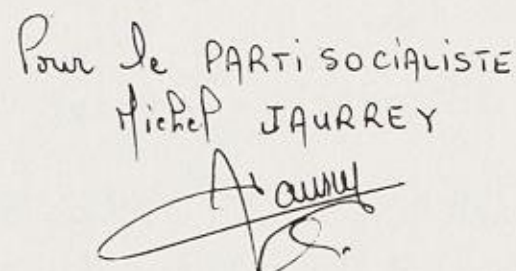 Pour le PARTI SOCIALISTE
Michel JAURREY